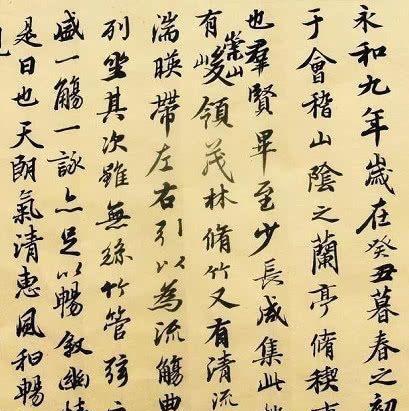 永和九年歲在癸丑暮春之初
于會稽山陰之蘭亭脩稧
也羣賢畢至少長咸集此
有崇山峻領茂林脩竹又有清流
湍暎帶左右引以為流觴曲
列坐其次雖無絲竹管弦之
盛一觴一詠亦足以暢敘幽情
是日也天朗氣清惠風和暢